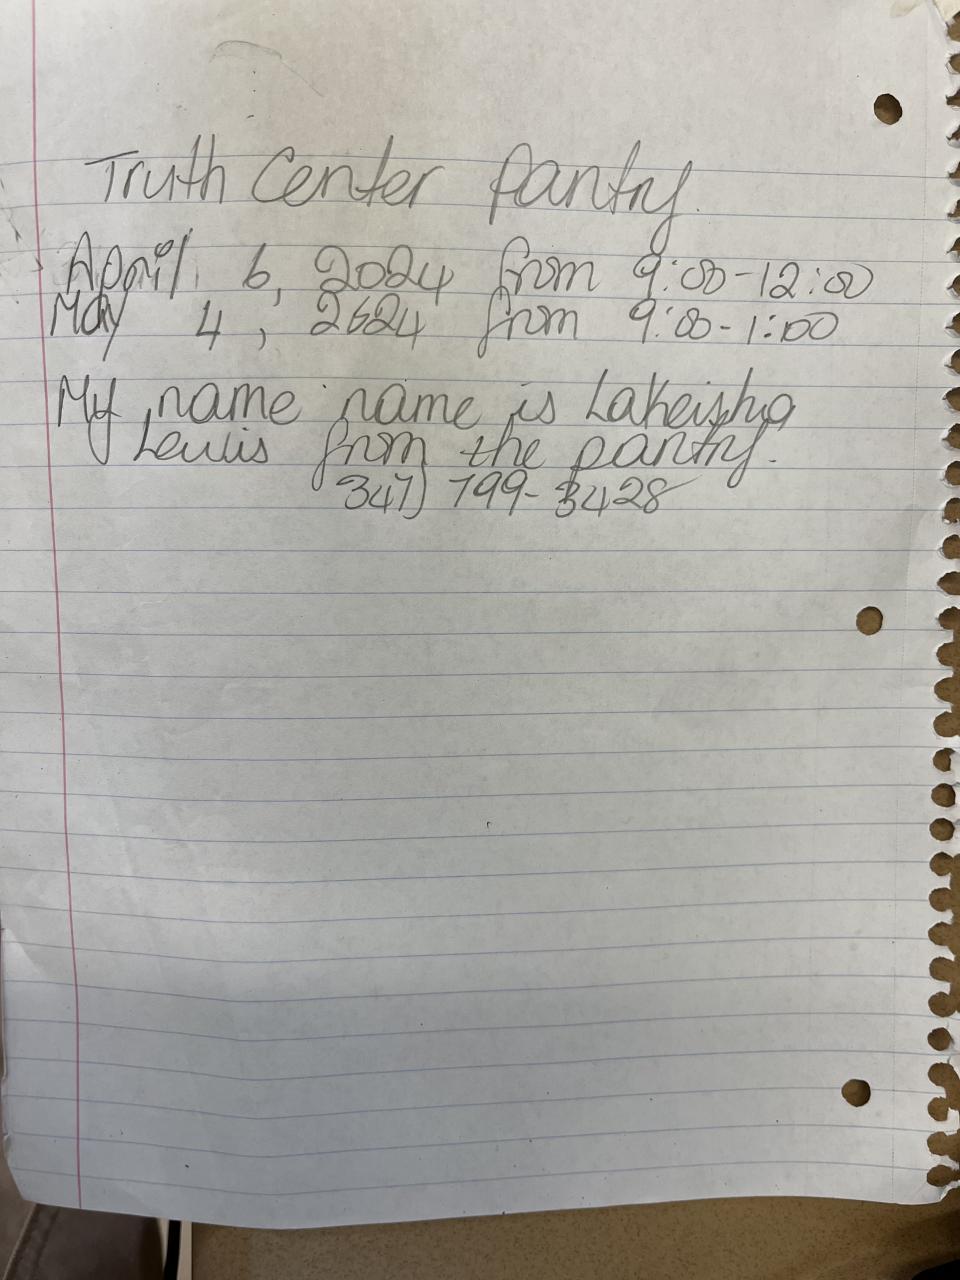 Truth Center Pantry.
April 6, 2024 from 9:00-12:00
May 4, 2624 from 9:00-1:00
My name name is Lakeisha
Lewis from the pantry.
347) 799-3428